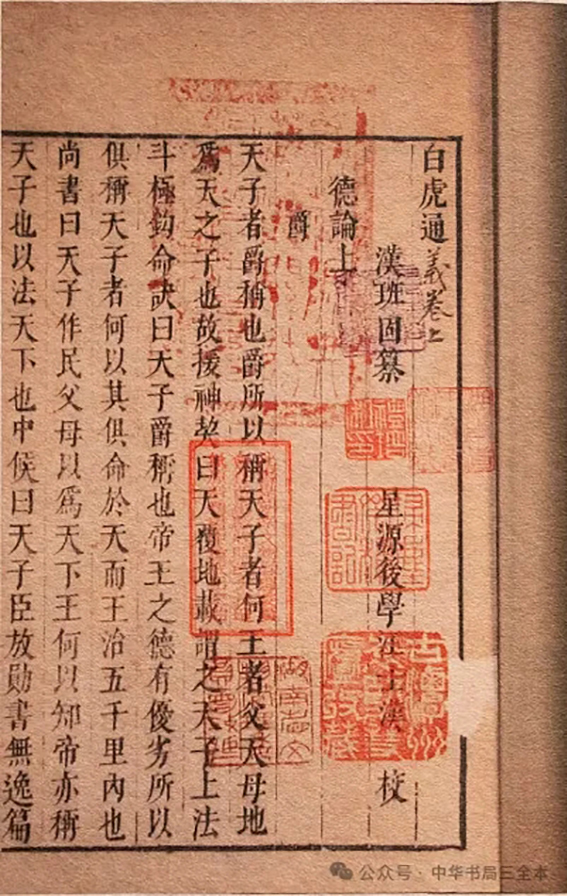 白虎通義卷上
漢班固纂 星源後學汪士漢 校
德論上
爵
天子者爵稱也爵所以稱天子者何王者父天母地
爲天之子也故援神契曰天覆地載謂之天子上法
斗極鈎命訣曰天子爵稱也帝王之德有優劣所以
俱稱天子者何以其俱命於天而王治五千里內也
尚書曰天子作民父母以爲天下王何以知帝亦稱
天子也以法天下也中候曰天子臣放勛書無逸篇
公众号·中华书局三全本